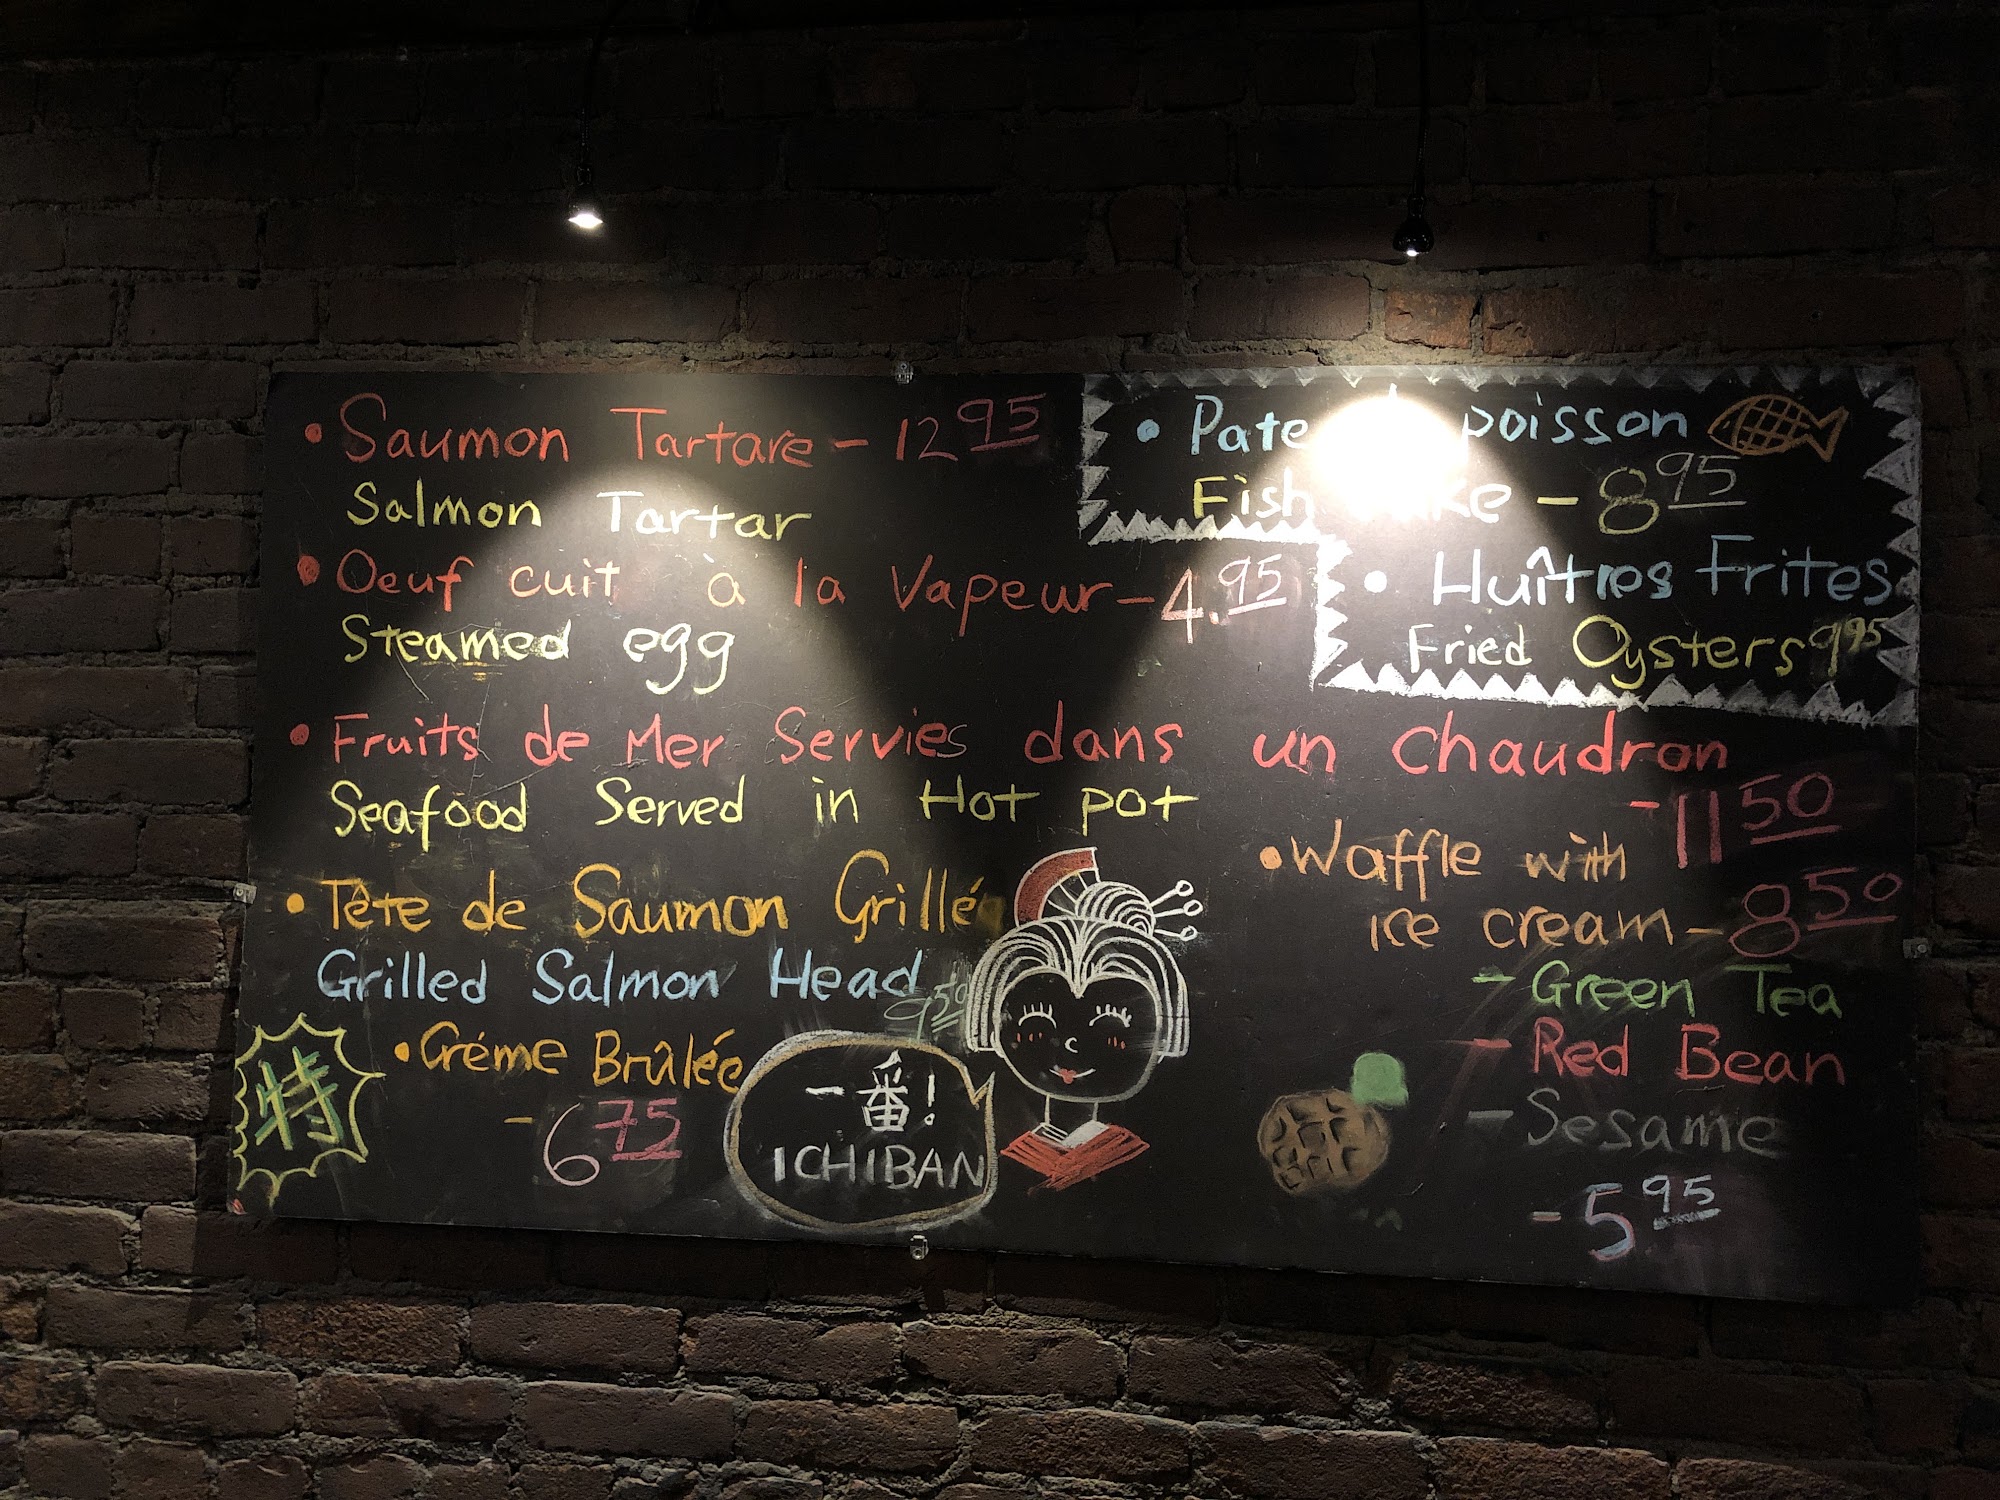 • Saumon Tartare - 12 95
Salmon Tartar
• Oeuf cuit à la Vapeur - 4.95
Steamed egg
• Fruits de Mer Servies dans un chaudron
Seafood Served in Hot pot
- 11 50
• Tête de Saumon Grillé
Grilled Salmon Head
9 50
• Créme Brûlée
- 6 75
特
一番!
ICHIBAN
• Pate poisson
Fish - 8 95
• Huîtres Frites
Fried Oysters 9 95
• Waffle with
ice cream - 8 50
- Green Tea
- Red Bean
- Sesame
- 5 95